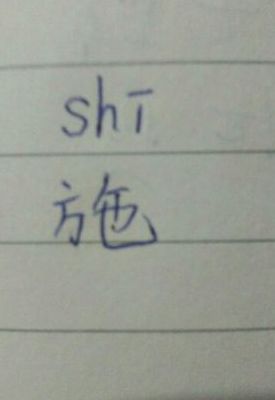 shī
施